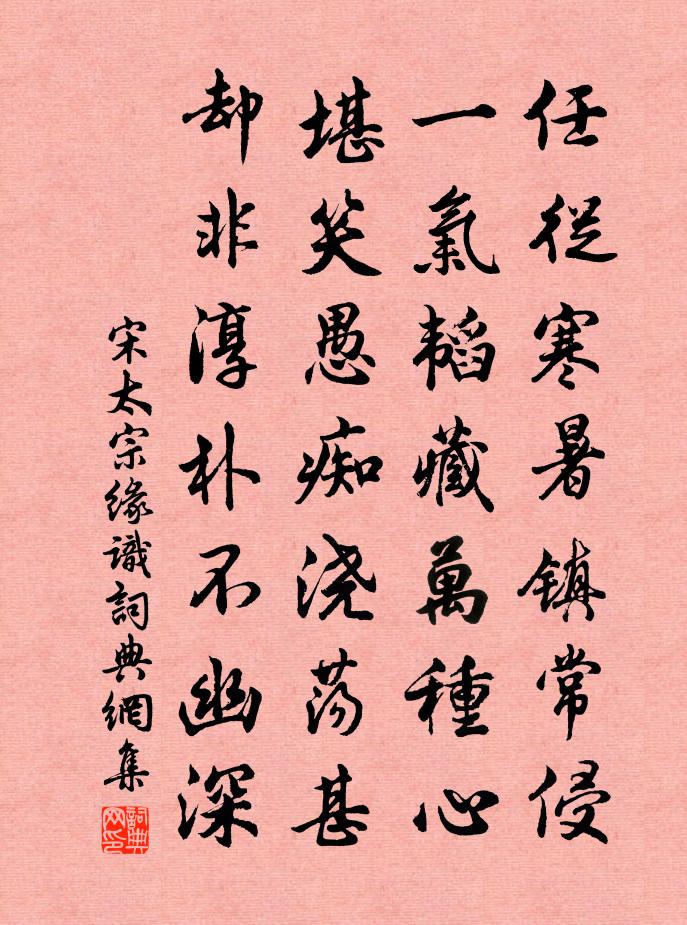 任從寒暑鎮常侵
一氣韜藏萬種心
堪笑愚痴浇荡甚
却非淳朴不幽深
宋太宗緣識詞典網集
詞典网印